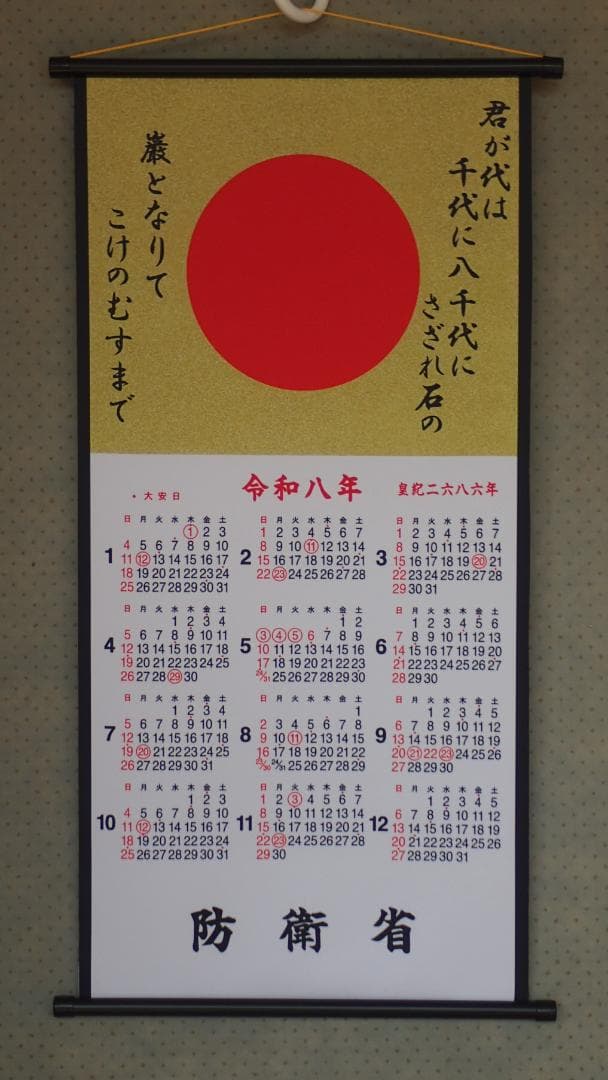 君が代は
千代に八千代に
さざれ石の
巌となりて
こけのむすまで
・大安日
令和八年
皇紀二六八六年
1
日 月 火 水 木 金 土
1 2 3
4 5 6 7 8 9 10
11 12 13 14 15 16 17
18 19 20 21 22 23 24
25 26 27 28 29 30 31
2
日 月 火 水 木 金 土
1 2 3 4 5 6 7
8 9 10 11 12 13 14
15 16 17 18 19 20 21
22 23 24 25 26 27 28
3
日 月 火 水 木 金 土
1 2 3 4 5 6 7
8 9 10 11 12 13 14
15 16 17 18 19 20 21
22 23 24 25 26 27 28
29 30 31
4
日 月 火 水 木 金 土
1 2 3 4
5 6 7 8 9 10 11
12 13 14 15 16 17 18
19 20 21 22 23 24 25
26 27 28 29 30
5
日 月 火 水 木 金 土
1 2
3 4 5 6 7 8 9
10 11 12 13 14 15 16
17 18 19 20 21 22 23
24/31 25 26 27 28 29 30
6
日 月 火 水 木 金 土
1 2 3 4 5 6
7 8 9 10 11 12 13
14 15 16 17 18 19 20
21 22 23 24 25 26 27
28 29 30
7
日 月 火 水 木 金 土
1 2 3 4
5 6 7 8 9 10 11
12 13 14 15 16 17 18
19 20 21 22 23 24 25
26 27 28 29 30 31
8
日 月 火 水 木 金 土
1
2 3 4 5 6 7 8
9 10 11 12 13 14 15
16 17 18 19 20 21 22
23/30 24/31 25 26 27 28 29
9
日 月 火 水 木 金 土
1 2 3 4 5
6 7 8 9 10 11 12
13 14 15 16 17 18 19
20 21 22 23 24 25 26
27 28 29 30
10
日 月 火 水 木 金 土
1 2 3
4 5 6 7 8 9 10
11 12 13 14 15 16 17
18 19 20 21 22 23 24
25 26 27 28 29 30 31
11
日 月 火 水 木 金 土
1 2 3 4 5 6 7
8 9 10 11 12 13 14
15 16 17 18 19 20 21
22 23 24 25 26 27 28
29 30
12
日 月 火 水 木 金 土
1 2 3 4 5
6 7 8 9 10 11 12
13 14 15 16 17 18 19
20 21 22 23 24 25 26
27 28 29 30 31
防衛省